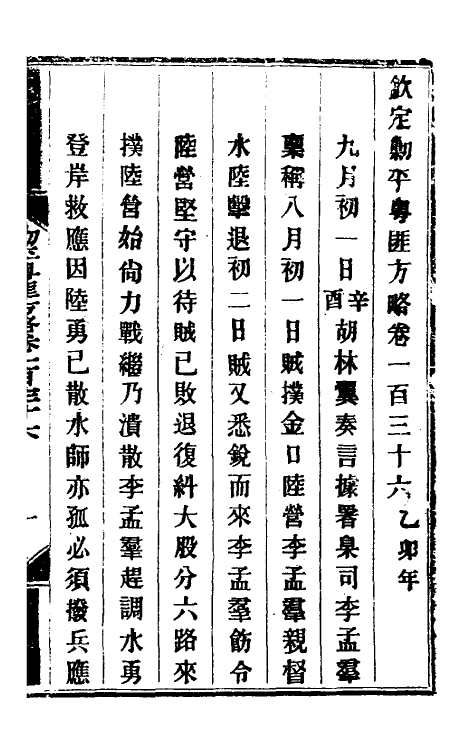 欽定勦平粵匪方略卷一百三十六乙卯年
九月初一日辛酉胡林翼奏言據署臬司李孟羣
稟稱八月初一日賊撲金口陸營李孟羣親督
水陸擊退初二日賊又悉銳而來李孟羣飭令
陸營堅守以待賊已敗退復糾大股分六路來
撲陸營始尙力戰繼乃潰散李孟羣趕調水勇
登岸救應因陸勇已散水師亦孤必須撥兵應
卷一百三十六
一